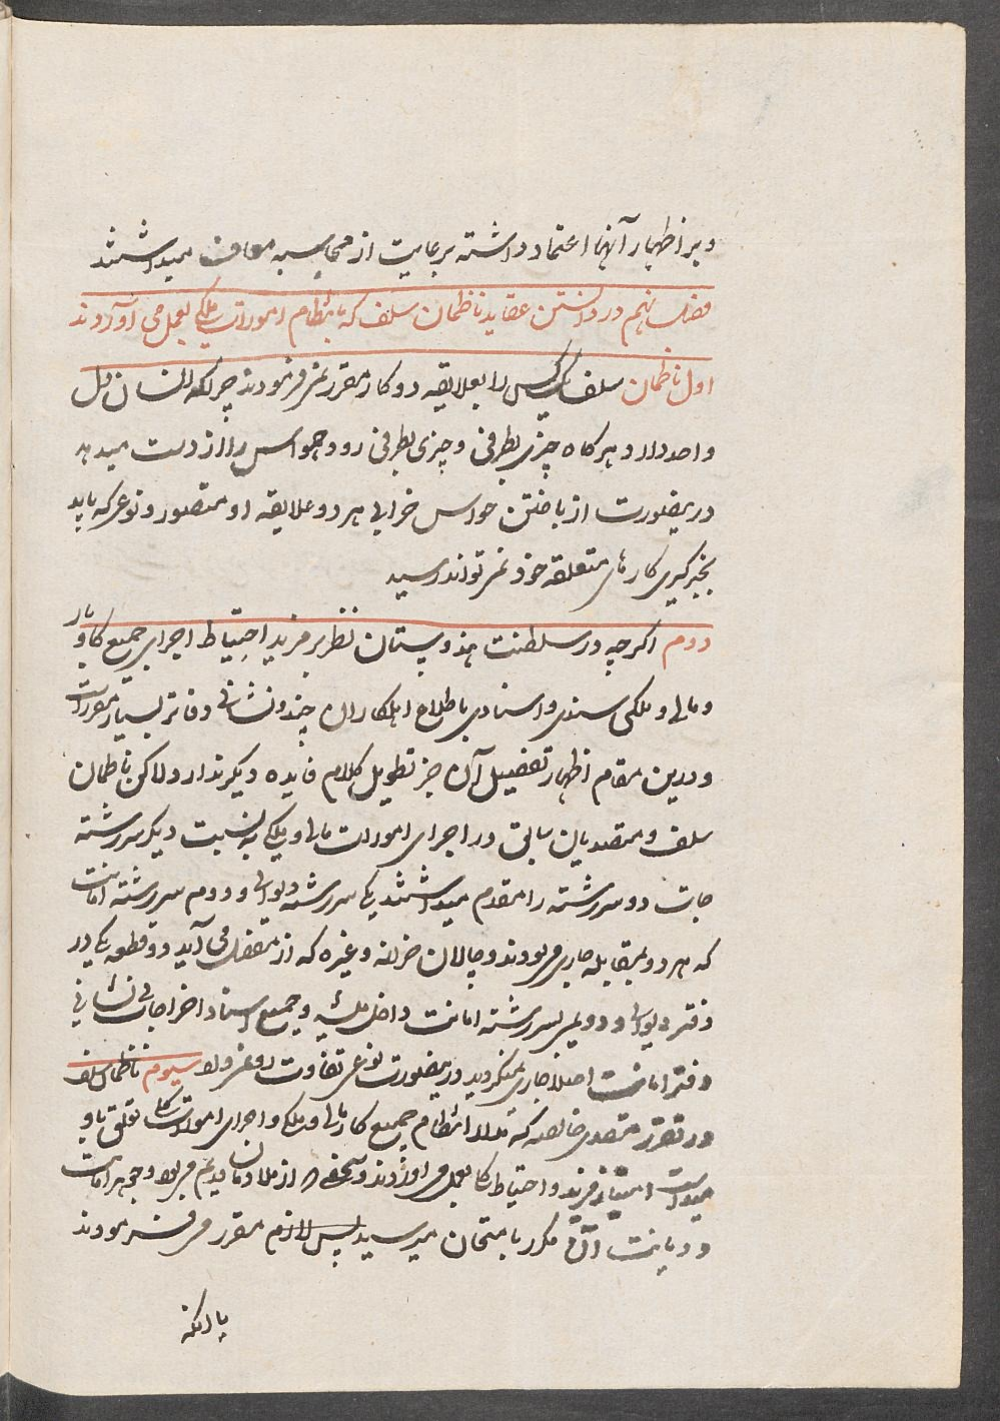 و بر اظهار آنها اعتماد داشته بر عایت از محاسبه معاف میداشتند
فصل نهم در دانستن عقاید ناظمان سلف که بانتظام امورات ملکی بعمل می آوردند
اول ناظمان سلف یک کس را بعلایقه دو کار مقرر نمی فرمودند چرا که انسان دل
واحد دارد و هرگاه چیزی بطرفی و چیزی بطرفی رود حواس را از دست میدهد
درینصورت از باختن حواس خرابی هر دو علایقه او متصور و نوعی که باید
بخبرگیری کارهای متعلقه خود نمی تواند رسید
دوم اگرچه در سلطنت هندوستان نظر بر مزید احتیاط اجرای جمیع کاروبار
و مالی و ملکی سندی و اسنادی باطلاع اهلکاران چند و نشانی دفاتر بسیار مقرر است
و درین مقام اظهار تفصیل آن جز تطویل کلام فایده دیگر ندارد ولاکن ناظمان
سلف و متصدیان سابق در اجرای امورات مالی و ملکی به نسبت دیگر سررشته
جات دو سررشته را مقدم میداشتند یکی سررشته دیوانی و دوم سررشته امانت
که هر دو بمقابله جاری می بودند و چالان خزانه وغیره که از مفصل می آید دو قطعه یکی در
دفتر دیوانی و دویمی بسررشته امانت داخل میشد و جمیع اسناد اخراجات بی نشانی
دفتر امانت اصلا جاری نمیگردید درینصورت نوعی تفاوت رو نمیداد سیوم ناظمان سلف
در تقرر متصدی خالصه که مدار انتظام جمیع کار مالی و ملکی و اجرای امورات کل تعلق باو
میداشت امتیاز مزید و احتیاط کلی بعمل می آوردند و شخصی را از ملازمان قدیم می بود و جوهر امانت
و دیانت آن مکرر بامتحان میرسید بدین لازم مقرر می فرمودند
با آنکه